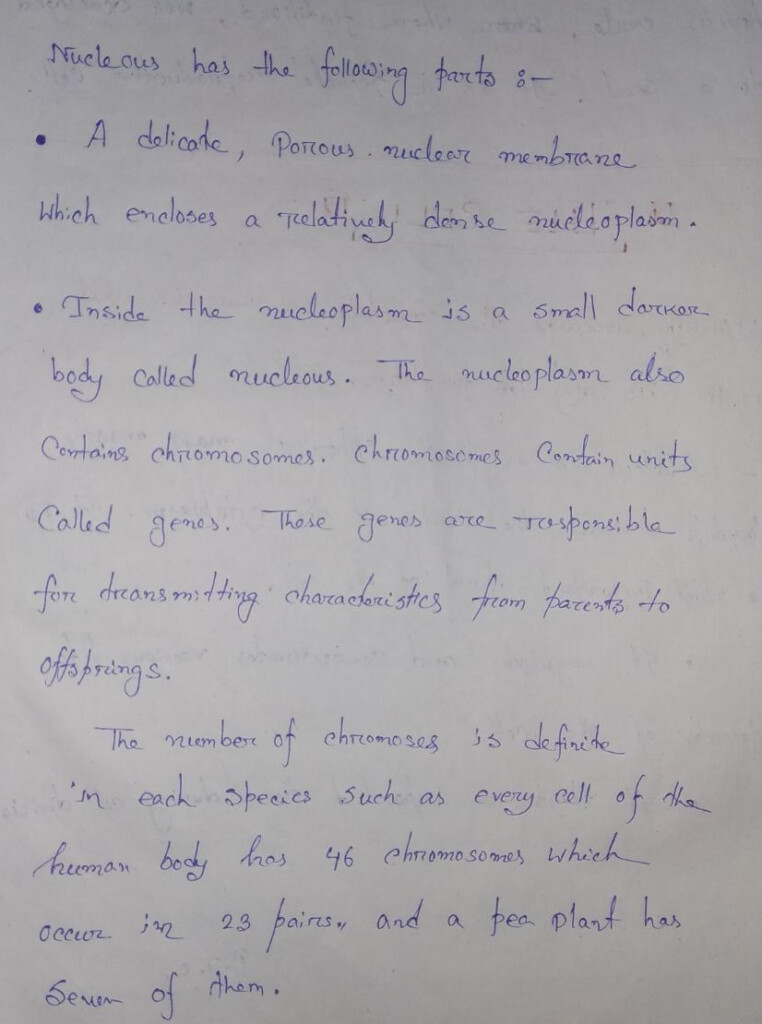 Nucleous has the following parts :-
• A delicate, Porous. nuclear membrane
Which encloses a relatively dense nucleoplasm.
• Inside the nucleoplasm is a small darker
body Called nucleous. The nucleoplasm also
Contains chromosomes. Chromosomes Contain units
Called genes. These genes are responsible
for transmitting characteristics from parents to
offsprings.
The number of chromoses is definite
in each species such as every cell of the
human body has 46 chromosomes which
occur in 23 pairs, and a pea plant has
Seven of them.